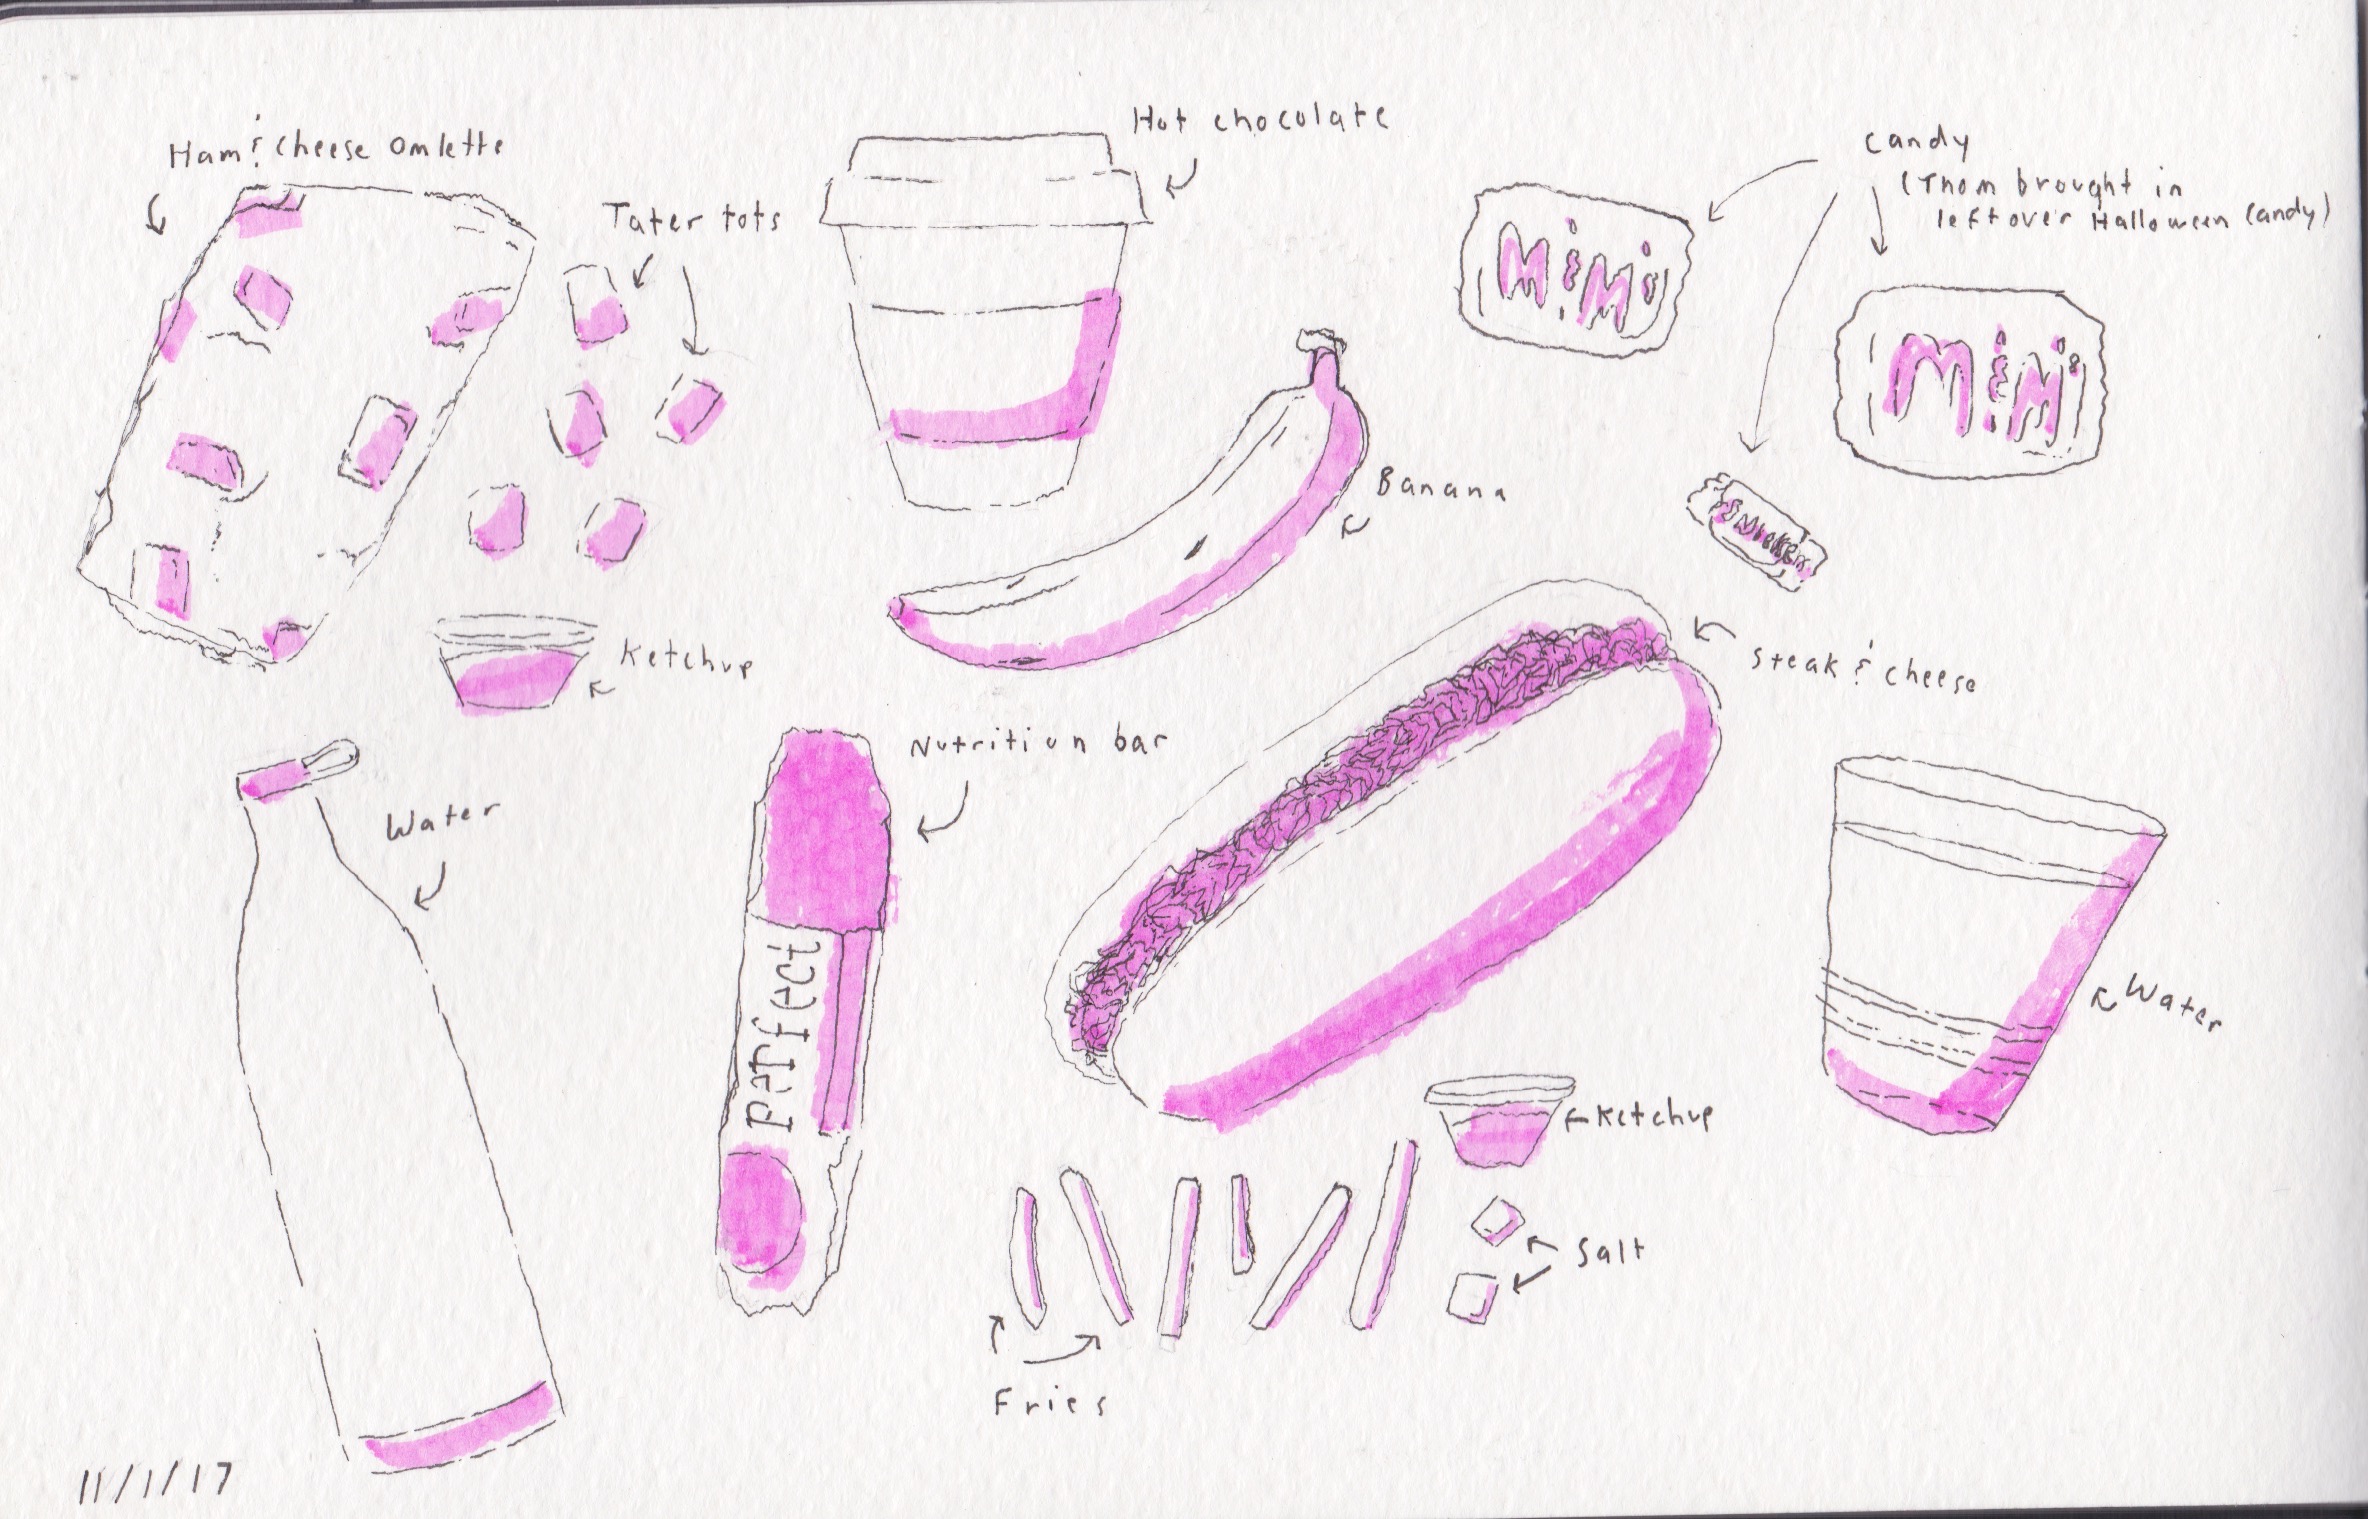 Ham & cheese omlette
Tater tots
Hot chocolate
candy
(Thom brought in
leftover Halloween candy)
M&M's
M&M's
Snickers
Banana
Ketchup
steak & cheese
Nutrition bar
Water
perfect
Water
Ketchup
Salt
Fries
11/1/17